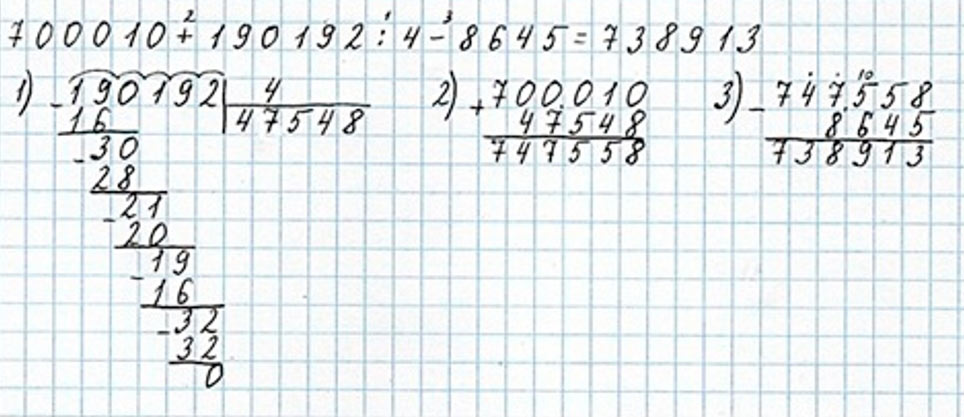 700010 + 190192 : 4 - 8645 = 738913
2 1 3
1) - 190192 | 4
16 47548
- 30
28
- 21
20
- 19
16
- 32
32
0
2) + 700.010
47548
747558
3) - 747.558
8645
738913
10